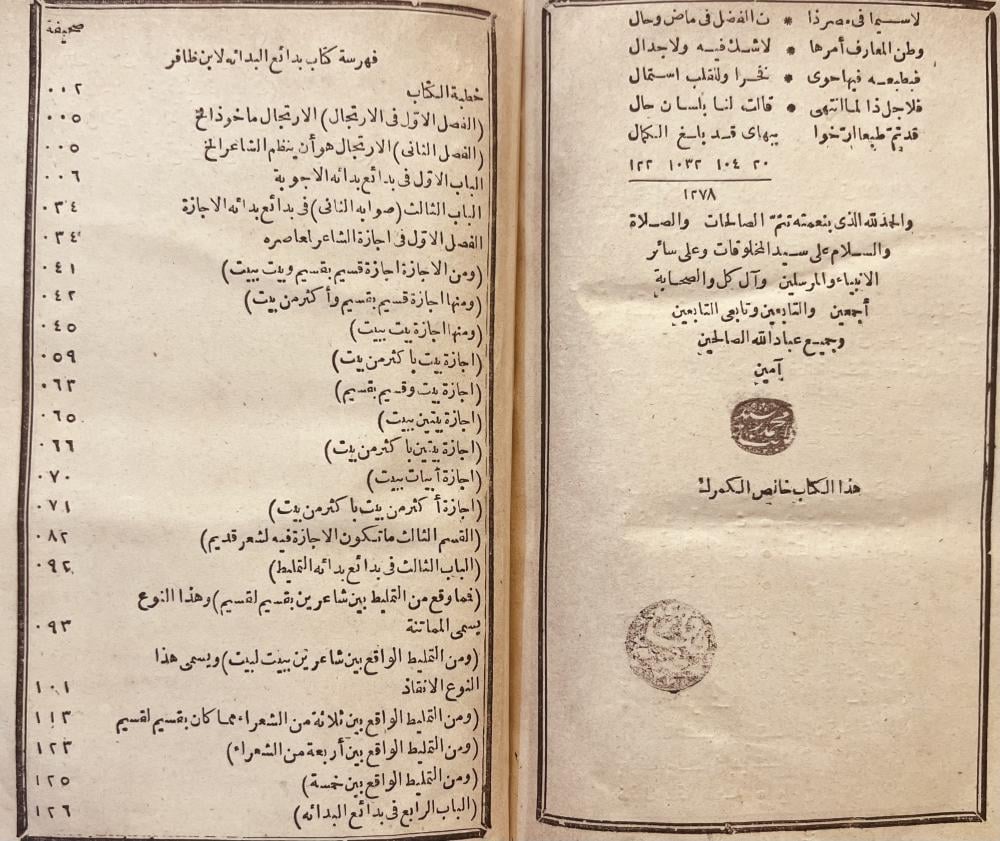 لاسيما فى مصر ذا * ن الفضل فى ماض وحال
وطن المعارف أمرها * لاشك فيه ولاجدال
فبطبعه فيها حوى * نفرا وللقلب استمال
فلاجل ذا لما انتهى * قالت لنا بلسان حال
قد تم طبعا ارّخوا ببهاى قد بلغ الكمال
٢٠ ١٠٤ ١٠٣٢ ١٢٢
١٢٧٨
والحمد لله الذى بنعمته تتمّ الصالحات والصلاة
والسلام على سيد المخلوقات وعلى سائر
الانبياء والمرسلين وآل كل والصحابة
أجمعين والتابعين وتابعى التابعين
وجميع عباد الله الصالحين
آمين
هذا الكتاب خالص الكمرك
صحيفة
فهرسة كتاب بدائع البدائه لابن ظافر
خطبة الكتاب ٠٠٢
(الفصل الاوّل فى الارتجال) الارتجال ماخوذ الخ ٠٠٥
(الفصل الثانى) الارتجال هو أن ينظم الشاعر الخ ٠٠٥
الباب الاوّل فى بدائع بدائه الاجوبة ٠٠٦
الباب الثالث (صوابه الثانى) فى بدائع بدائه الاجازة ٠٣٤
الفصل الاوّل فى اجازة الشاعر لمعاصره ٠٣٤
(ومن الاجازة اجازة قسيم بقسيم وبيت ببيت) ٠٤١
(ومنها اجازة قسيم بقسيم وأكثر من بيت) ٠٤٢
(ومنها اجازة بيت ببيت) ٠٤٥
(اجازة بيت باكثر من بيت) ٠٥٩
(اجازة بيت وقسيم بقسيم) ٠٦٣
(اجازة بيتين ببيت) ٠٦٥
(اجازة بيتين باكثر من بيت) ٠٦٦
(اجازة أبيات ببيت) ٠٧٠
(اجازة أكثر من بيت باكثر من بيت) ٠٧١
(القسم الثالث ما تكون الاجازة فيه لشعر قديم) ٠٨٢
(الباب الثالث فى بدائع بدائه التمليط) ٠٩٢
(فما وقع من التمليط بين شاعرين بقسيم لقسيم) وهذا النوع
يسمى المماتنة ٠٩٣
(ومن التمليط الواقع بين شاعرين ببيت لبيت) ويسمى هذا
النوع الانفاذ ١٠١
(ومن التمليط الواقع بين ثلاثة من الشعراء مما كان بقسيم لقسيم ١١٣
(ومن التمليط الواقع بين أربعة من الشعراء) ١٢٣
(ومن التمليط الواقع بين خمسة) ١٢٥
(الباب الرابع فى بدائع البدائه) ١٢٦